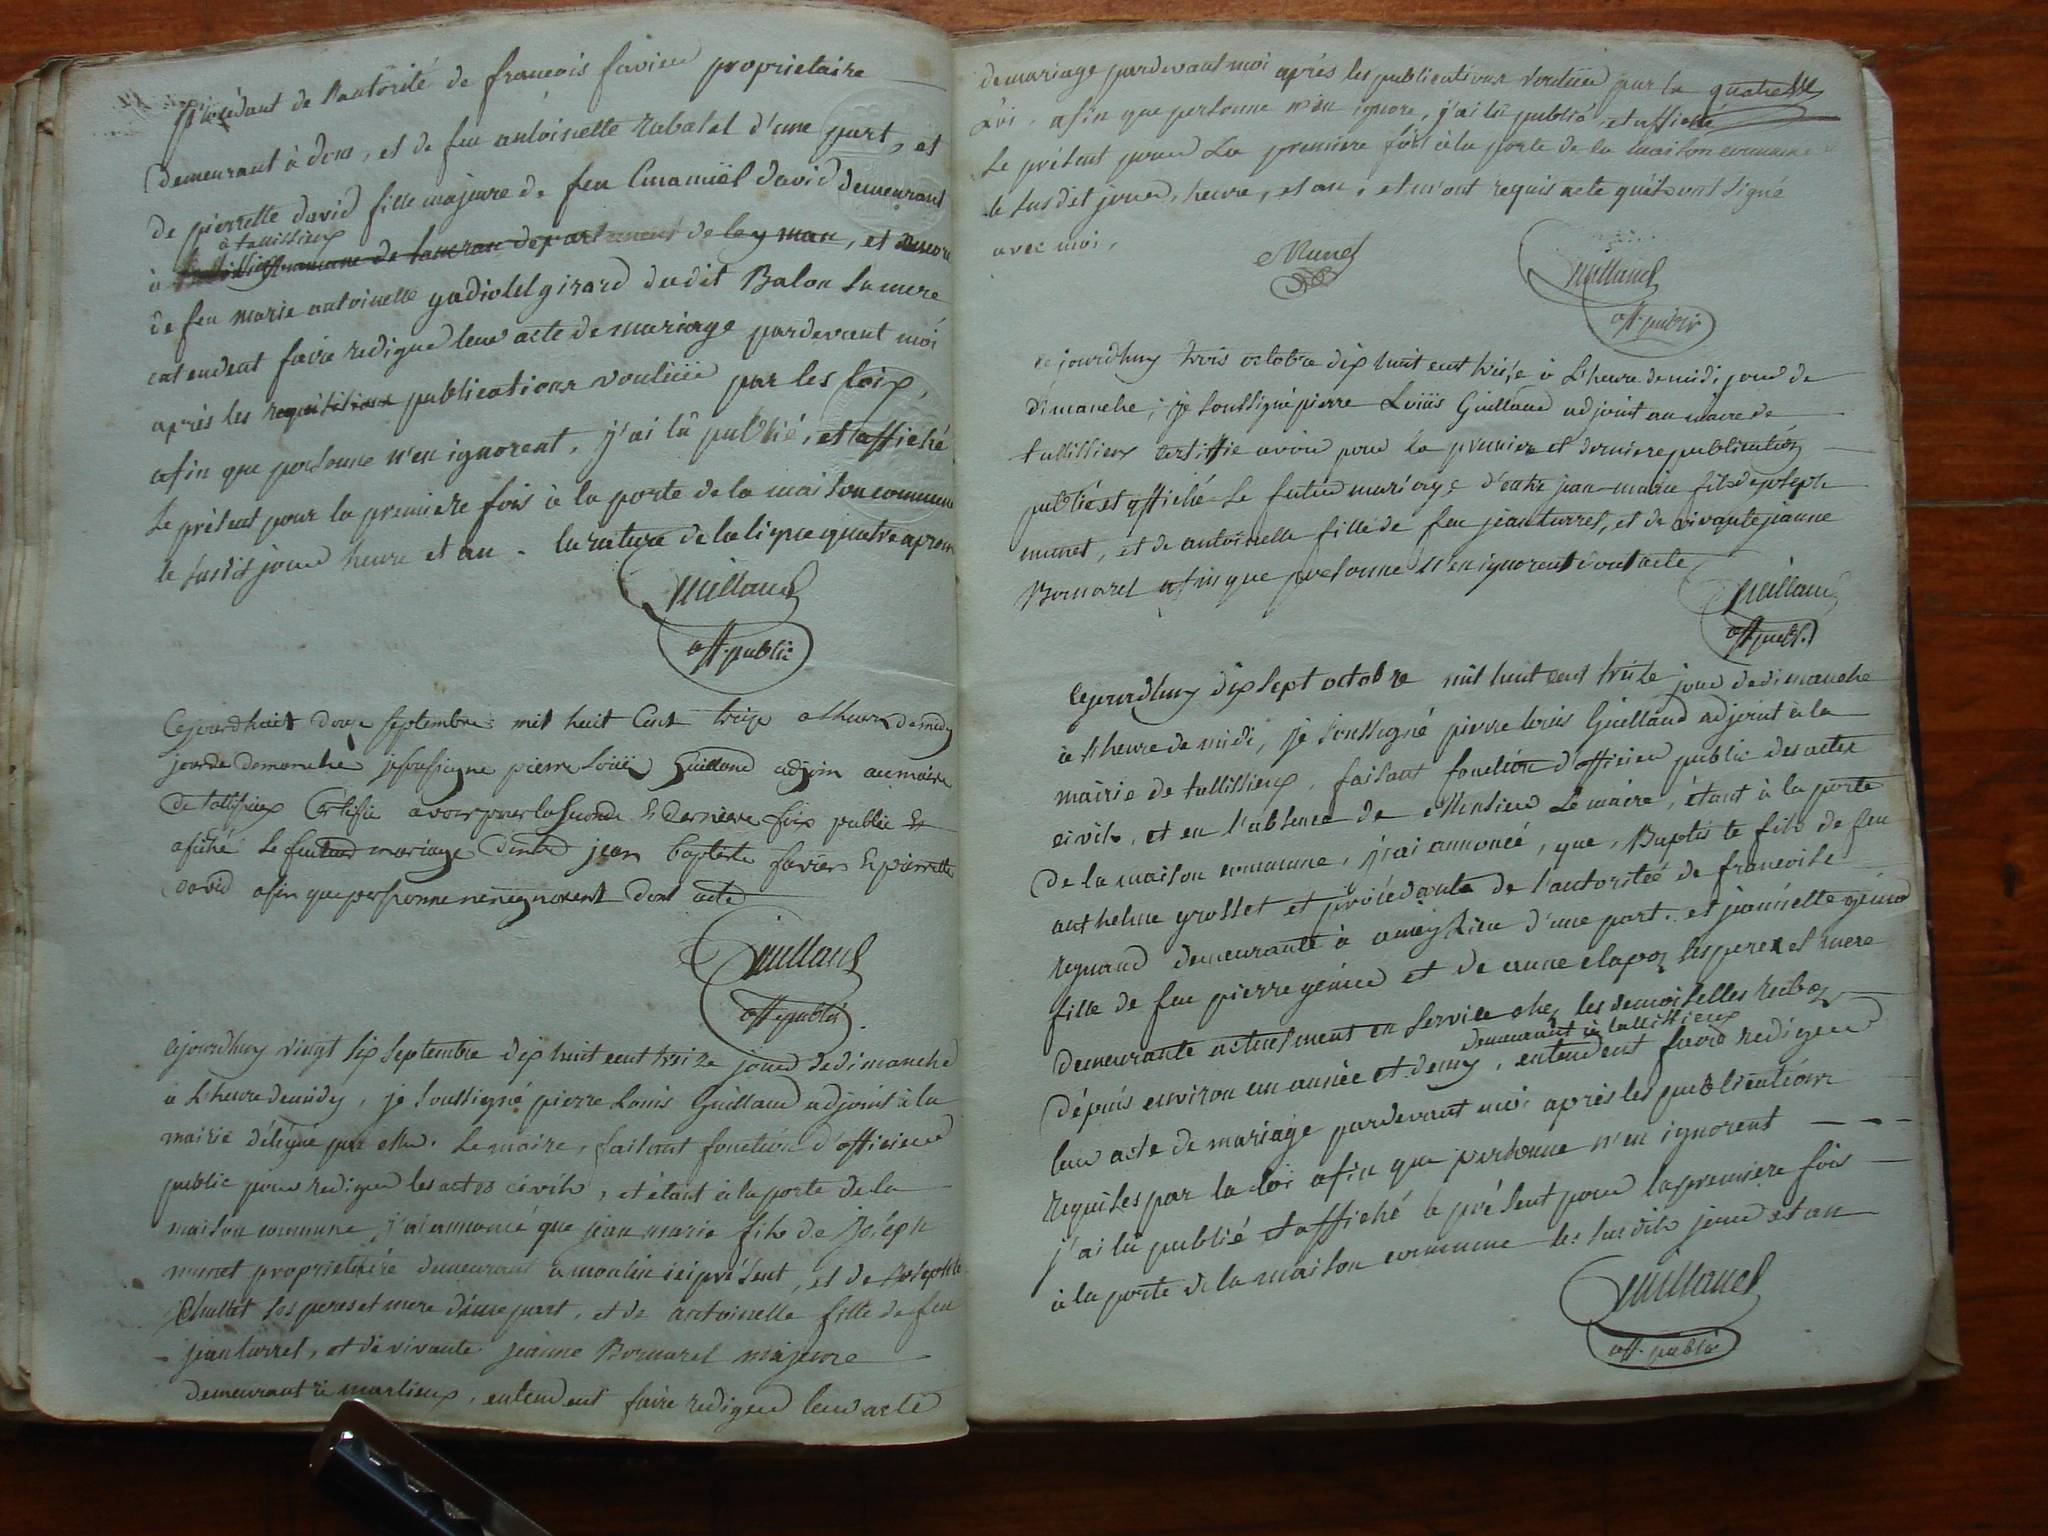 procédant de l'autorité de françois favier proprietaire
demeurant à don, et de feu antoinette Rabatel d'une part, et
de pierrette david fille majeure de feu Emamüel david demeurant
à tallissieux
à commune de departement de leyman, et encore
de feu marie antoinette gadiolet girard dudit Balon sa mere
entendent faire rediger leur acte de mariage pardevant moi
après les requisitions publications voulüe par les loix,
afin que personne n'en ignorent, j'ai lû publié, et affiché
Le présent pour la premiere fois à la porte de la maison commune
le susdit jour heure et an. la rature de la ligne quatre aprouvé
Guilland
off. public
Cejourdhuit douze septembre mil huit Cent treize a lheure de midy
jour de demanche je sousigne pierre Loüis Guilland adjoin au maire
de tallissieux Certifie avoir pour la seconde et derniere fois publié et
afiché le futur mariage dentre jean baptiste favier et pierrette
david afin que personne nen ignorent dont acte
Guilland
off. public
Cejourdhuy vingt six septembre dix huit cent treize jour de dimanche
à l'heure de midy, je soussigné pierre Louis Guilland adjoint à la
mairie délégué par Mr. Le maire, faisant fonction d'officier
public pour rediger les actes civils, et étant à la porte de la
maison commune, j'ai annoncé que jean marie fils de joseph
munet proprietaire demeurant à moulin ici présent, et de Josephte
Chullet ses peres et mere d'une part, et de antoinette fille de feu
jean turrel, et de vivante jeanne Bornarel majeure
demeurant à marlieux, entendent faire rediger leur acte
de mariage pardevant moi après les publications voulüe par la
Loi, afin que personne n'en ignore, j'ai lû publié, et affiché
Le présent pour La premiere fois à la porte de la maison commune
le susdit jour, heure, et an, et m'ont requis acte qu'ils ont signé
avec moi,
Munet
Guilland
off. public
Cejourdhuy trois octobre dix huit cent treize à L'heure de midi jour de
dimanche, je soussigné pierre Loüis Guilland adjoint au maire de
tallissieux certiffie avoir pour la premiere et derniere publication
publié et affiché Le futur mariage d'entre jean-marie fils de joseph
munet, et de antoinette fille de feu jean turrel, et de vivante jeanne
Bornarel afin que personne n'en ignorent dont acte
Guilland
off. publ.
Cejourdhuy dix sept octobre mil huit cent treize jour de dimanche
à l'heure de midi, je soussigné pierre louis Guilland adjoint à la
mairie de tallissieux, faisant fonction d'officier public des actes
civils, et en l'absence de Monsieur Le maire, étant à la porte
de la maison commune, j'ai annoncé, que, Baptiste fils de feu
anthelme grosset et procédante de l'autoritée de francoise
reynaud demeurante à ameyzieu d'une part. et jeannette génin
fille de feu pierre génin et de anne clapoz ses peres et mere
demeurante actuelment en service chez les demoiselles Reiboz
demeurant à tallissieux
dépuis environ un année et demy, entendent faire rediger
leur acte de mariage pardevant moi après les publications
requises par la loi afin que personne n'en ignorent
j'ai lû publié et affiché le présent pour la premiere fois
à la porte de la maison commune les susdits jour et an
Guilland
off. public